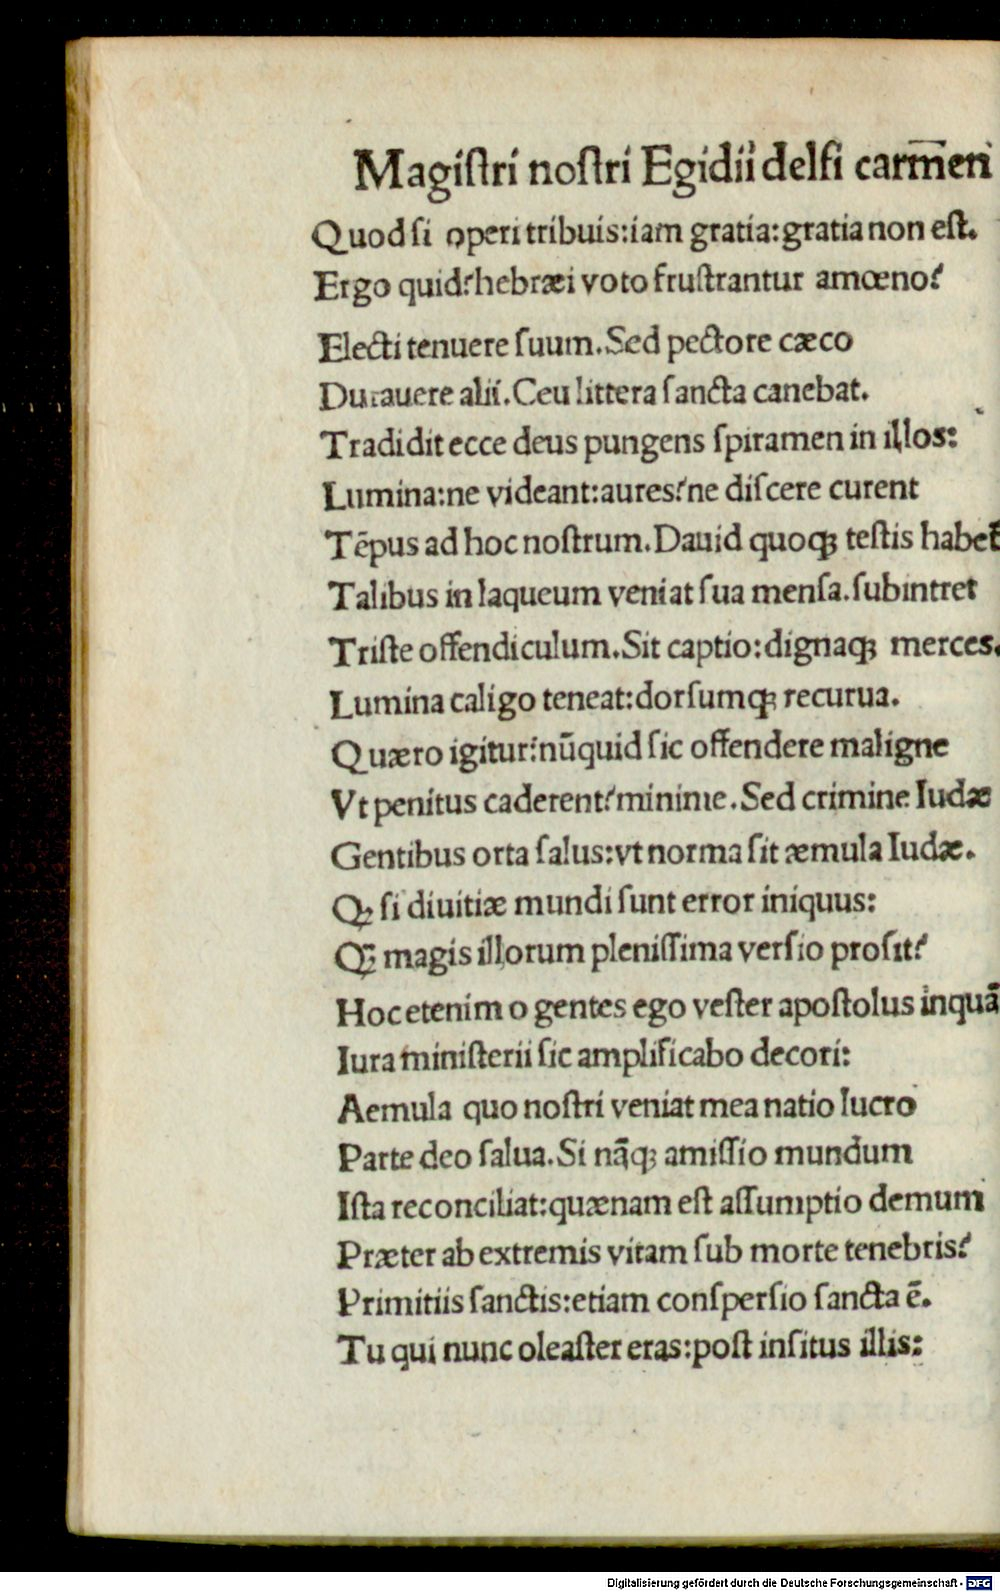 Magiſtri noſtri Egidii delfi carm̅en
Quod ſi operi tribuis:iam gratia:gratia non eſt.
Ergo quid?hebræi voto fruſtrantur amœno?
Electi tenuere ſuum.Sed pectore cæco
Durauere alii.Ceu littera ſancta canebat.
Tradidit ecce deus pungens ſpiramen in illos:
Lumina:ne videant:aures?ne diſcere curent
Tēpus ad hoc noſtrum.Dauid quoqꝫ teſtis habet
Talibus in laqueum veniat ſua menſa.ſubintret
Triſte offendiculum.Sit captio:dignaqꝫ merces.
Lumina caligo teneat:dorſumqꝫ recurua.
Quæro igitur?nūquid ſic offendere maligne
Vt penitus caderent?minime.Sed crimine Iudæ
Gentibus orta ſalus:vt norma ſit æmula Iudæ.
Qꝫ ſi diuitiæ mundi ſunt error iniquus:
Qꝫ̄ magis illorum pleniſſima verſio proſit?
Hoc etenim o gentes ego veſter apoſtolus inquā
Iura miniſterii ſic amplificabo decori:
Aemula quo noſtri veniat mea natio lucro
Parte deo ſalua.Si nāqꝫ amiſſio mundum
Iſta reconciliat:quænam eſt aſſumptio demum
Præter ab extremis vitam ſub morte tenebris?
Primitiis ſanctis:etiam conſperſio ſancta ē.
Tu qui nunc oleaſter eras:poſt inſitus illis:
Digitalisierung gefördert durch die Deutsche Forschungsgemeinschaft - DFG